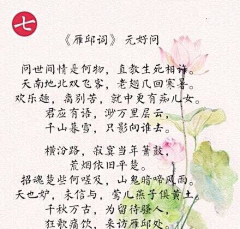 七
《雁邱词》 元好问
问世间情是何物，直教生死相许。
天南地北双飞客，老翅几回寒暑。
欢乐趣，离别苦，就中更有痴儿女。
君应有语，渺万里层云，
千山暮雪，只影向谁去。
横汾路，寂寞当年萧鼓，
荒烟依旧平楚。
招魂楚些何嗟及，山鬼暗啼风雨。
天也妒，未信与，莺儿燕子俱黄土。
千秋万古，为留待骚人，
狂歌痛饮，来访雁邱处。